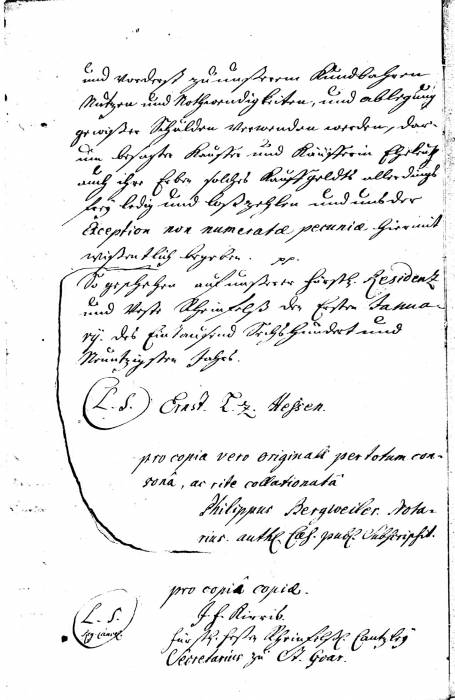 und vorderst zu unserem Kundbahren
Nutzen und Nothwendigkeiten, und ablegung
gewißer Schulden verwenden werden, dar-
um besagte Kauffer und Käufferin Eheleuth
auch ihre Erben solches Kauffgeldts allerdings
frey ledig und loßzehlen und uns der
Exception non numeratæ pecuniæ hiermit
wißentlich begeben. pp.
So geschehen auf unserer Fürstl. Residentz
und Veste Rheinfelß den Ersten Janua-
rij. des Eintausend Sechshundert und
Neuntzigsten Jahrs.
L. S. Ernst. L. z. Hessen.
pro copia vero originali per totum con-
sonâ, ac rite collationatâ
Philippus Bergweiler. Nota-
rius. auth. Cæs. publ. Subscripsit.
pro copiâ copiæ.
L. S.
Fürstl. Hessen Rheinfelß. Cantzley
Secretarius zu St. Goar.